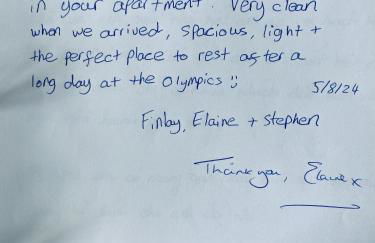 in your apartment. Very clean
when we arrived, spacious, light +
the perfect place to rest after a
long day at the Olympics :)
5/8/24
Finlay, Elaine + Stephen
Thank you, Elaine x